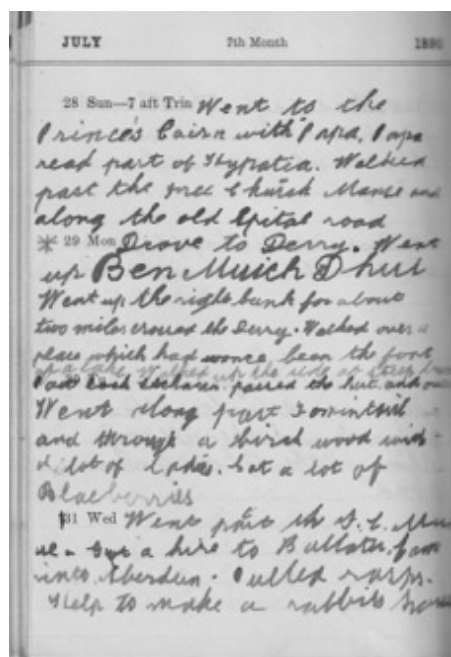 JULY 7th Month 1895
28 Sun—7 aft Trin Went to the
Prince's Cairn with Papa, Papa
read part of Hypatia. Walked
past the Free Church Manse and
along the old Spital road
29 Mon Drove to Derry. Went
up Ben Muich Dhui
Went up the right bank for about
two miles crossed the Derry. Walked over a
place which had wonce been the font
of a lake, Walked up the side
past Loch passed the hut and
Went along past Tomintoul
and through a birch wood with
a lot of Ladies. Eat a lot of
Blaeberries
31 Wed Went past the F. C. Man
se. Got a hire to Ballater, from
into Aberdeen. Pulled rasps.
Help to make a rabbits